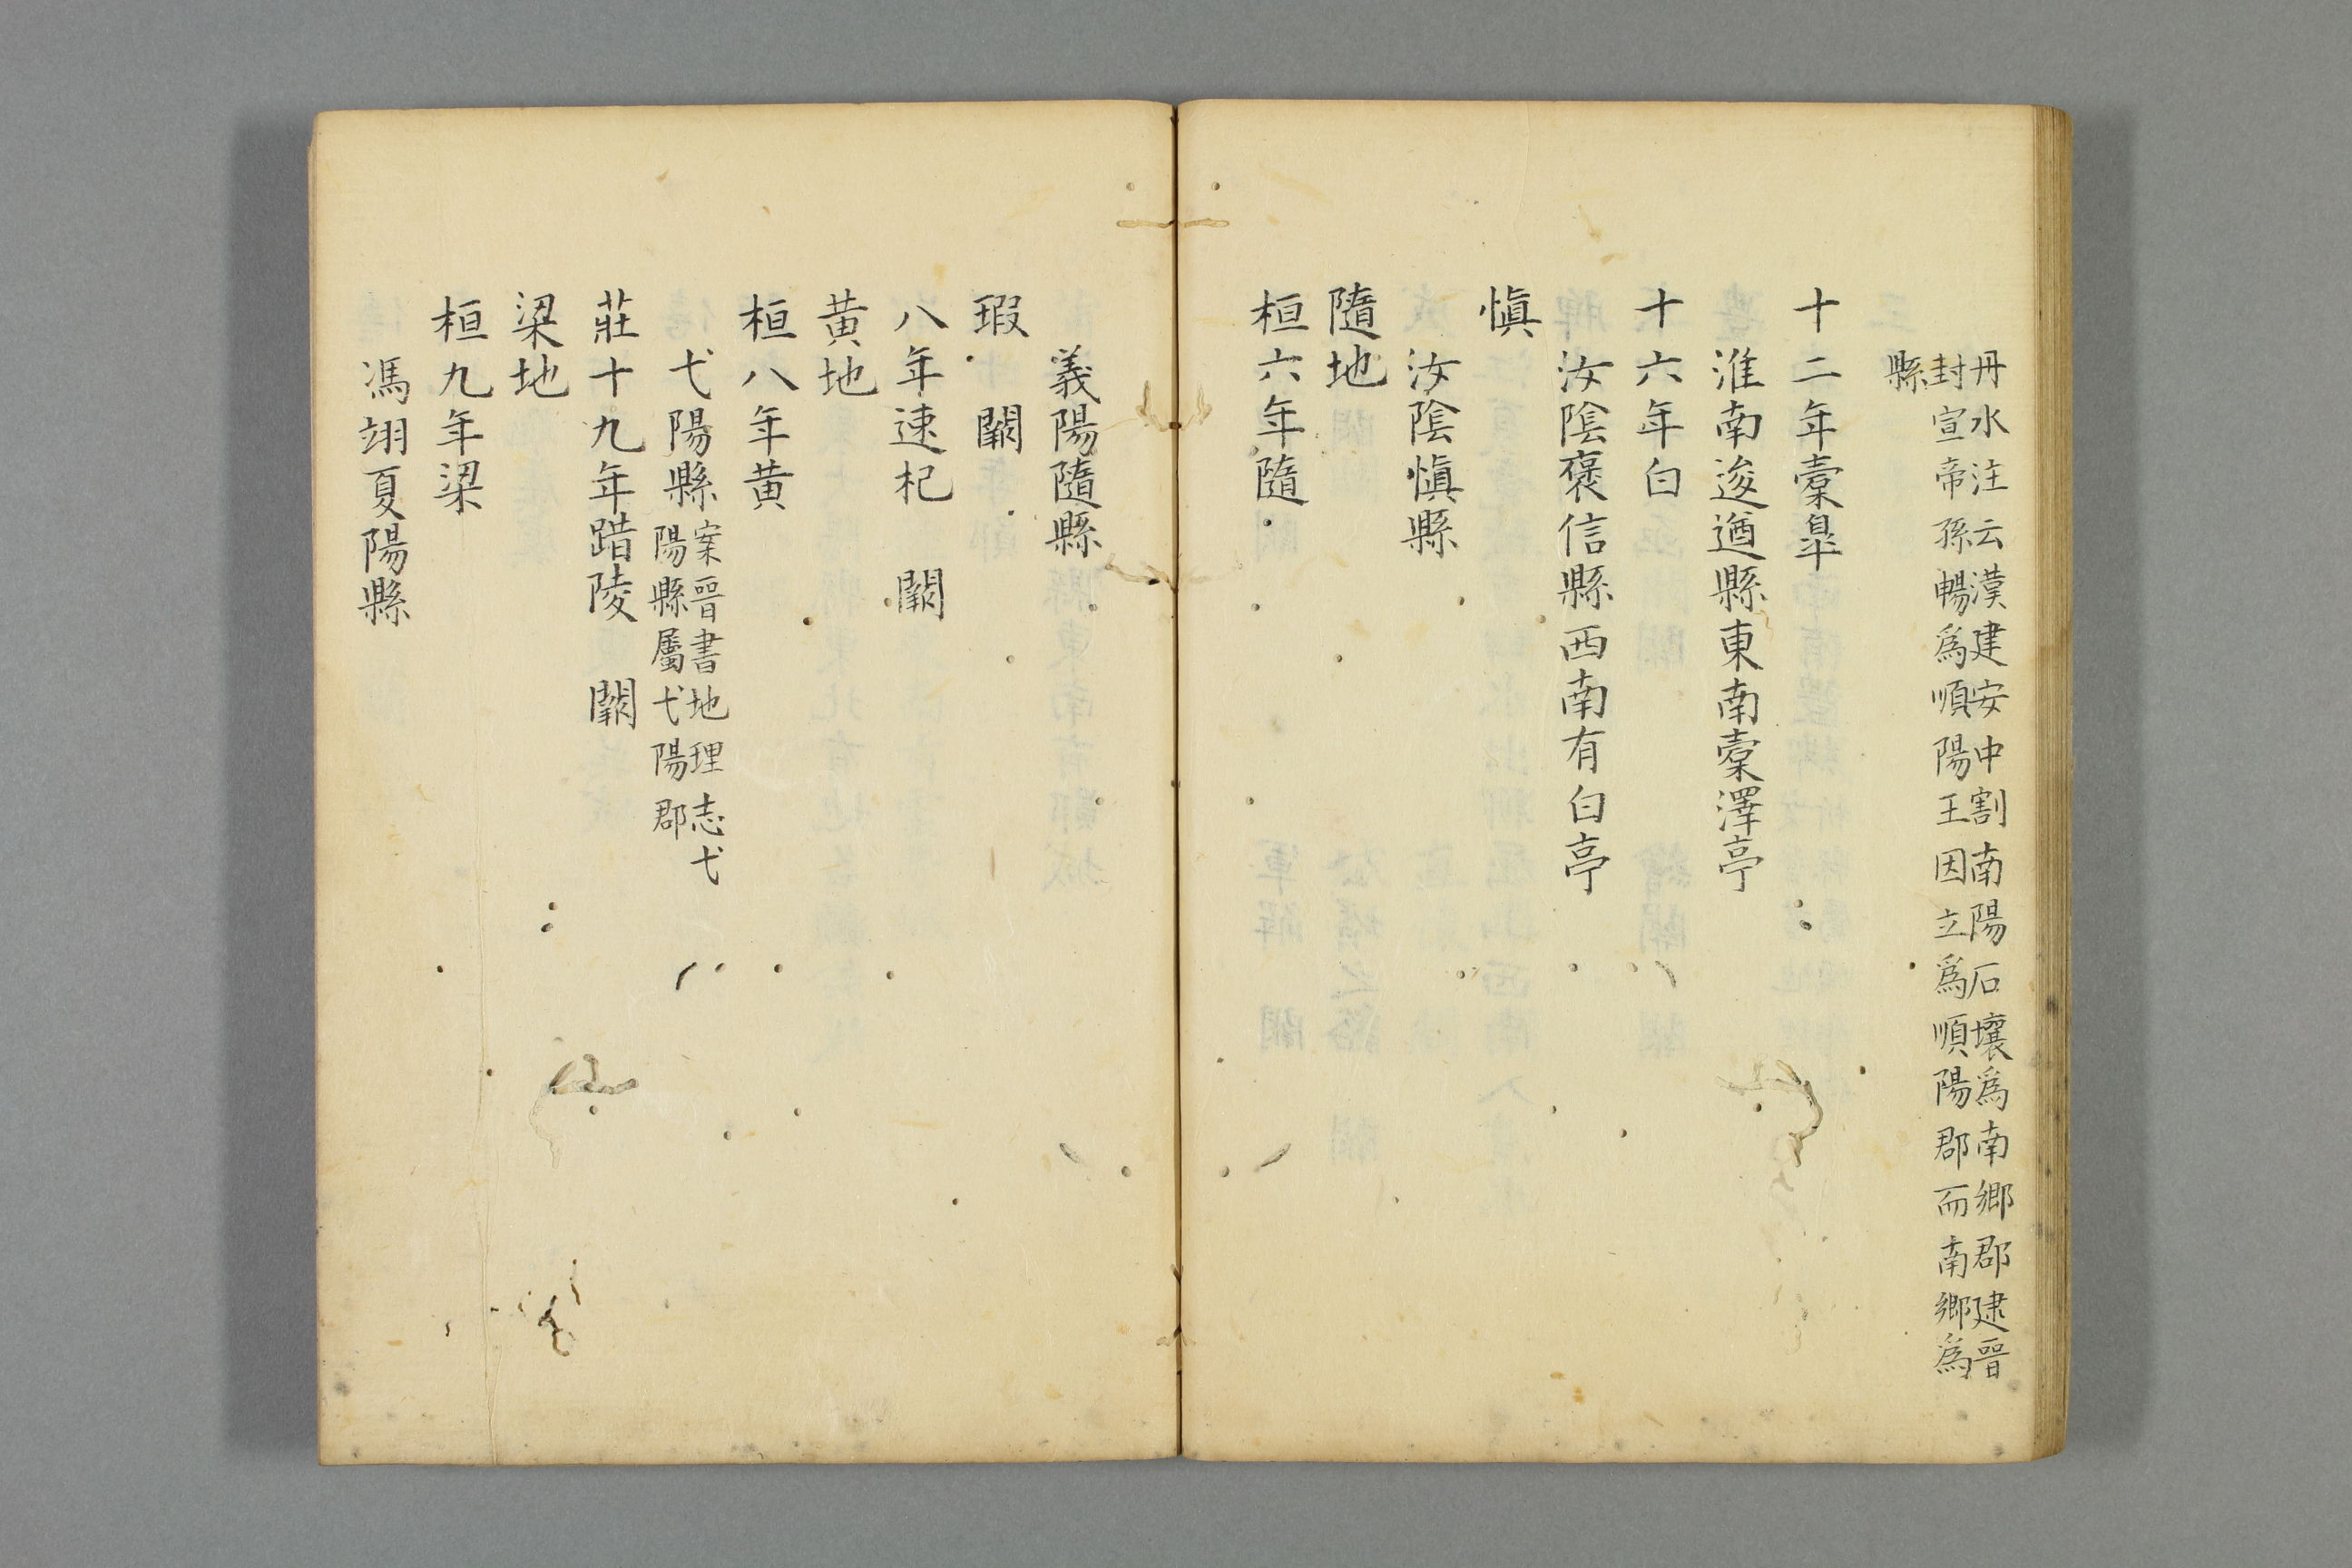 丹水注云漢建安中割南陽石壤爲南鄉郡建晉
封宣帝孫暢爲順陽王因立爲順陽郡而南鄉爲
縣
十二年槖臯
淮南逡遒縣東南槖澤亭
十六年白
汝陰褒信縣西南有白亭
愼
汝陰愼縣
隨地
桓六年隨
義陽隨縣
瑕　闕
八年速杞　闕
黄地
桓八年黄
弋陽縣案晉書地理志弋
陽縣屬弋陽郡
莊十九年踖陵　闕
梁地
桓九年梁
馮翊夏陽縣